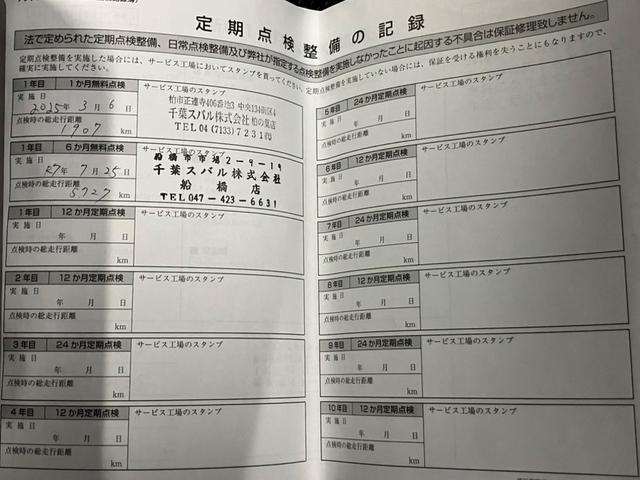 定期点検整備の記録
法で定められた定期点検整備、日常点検整備及び弊社が指定する点検整備を実施しなかったことに起因する不具合は保証修理致しません。
定期点検整備を実施した場合には、サービス工場においてスタンプを貰ってください。定期点検整備を実施していない場合には、保証を受ける権利を失うことにもなりますので、
確実に実施してください。
1年目 1か月無料点検
実施日
2025年3月6日
点検時の総走行距離
1907 km
サービス工場のスタンプ
千葉スバル株式会社 柏の葉店
TEL 04 (7133) 7231㈹
1年目 6か月無料点検
実施日
R7年7月25日
点検時の総走行距離
5727 km
船橋市市場2-9-19
千葉スバル株式会社
船橋店
TEL 047-423-6631
1年目 12か月定期点検
実施日
年 月 日
点検時の総走行距離
km
サービス工場のスタンプ
2年目 12か月定期点検
実施日
年 月 日
点検時の総走行距離
km
サービス工場のスタンプ
3年目 24か月定期点検
実施日
年 月 日
点検時の総走行距離
km
サービス工場のスタンプ
4年目 12か月定期点検
実施日
年 月 日
点検時の総走行距離
km
サービス工場のスタンプ
5年目 24か月定期点検
実施日
年 月 日
点検時の総走行距離
km
サービス工場のスタンプ
6年目 12か月定期点検
実施日
年 月 日
点検時の総走行距離
km
サービス工場のスタンプ
7年目 24か月定期点検
実施日
年 月 日
点検時の総走行距離
km
サービス工場のスタンプ
8年目 12か月定期点検
実施日
年 月 日
点検時の総走行距離
km
サービス工場のスタンプ
9年目 24か月定期点検
実施日
年 月 日
点検時の総走行距離
km
サービス工場のスタンプ
10年目 12か月定期点検
実施日
年 月 日
点検時の総走行距離
km
サービス工場のスタンプ